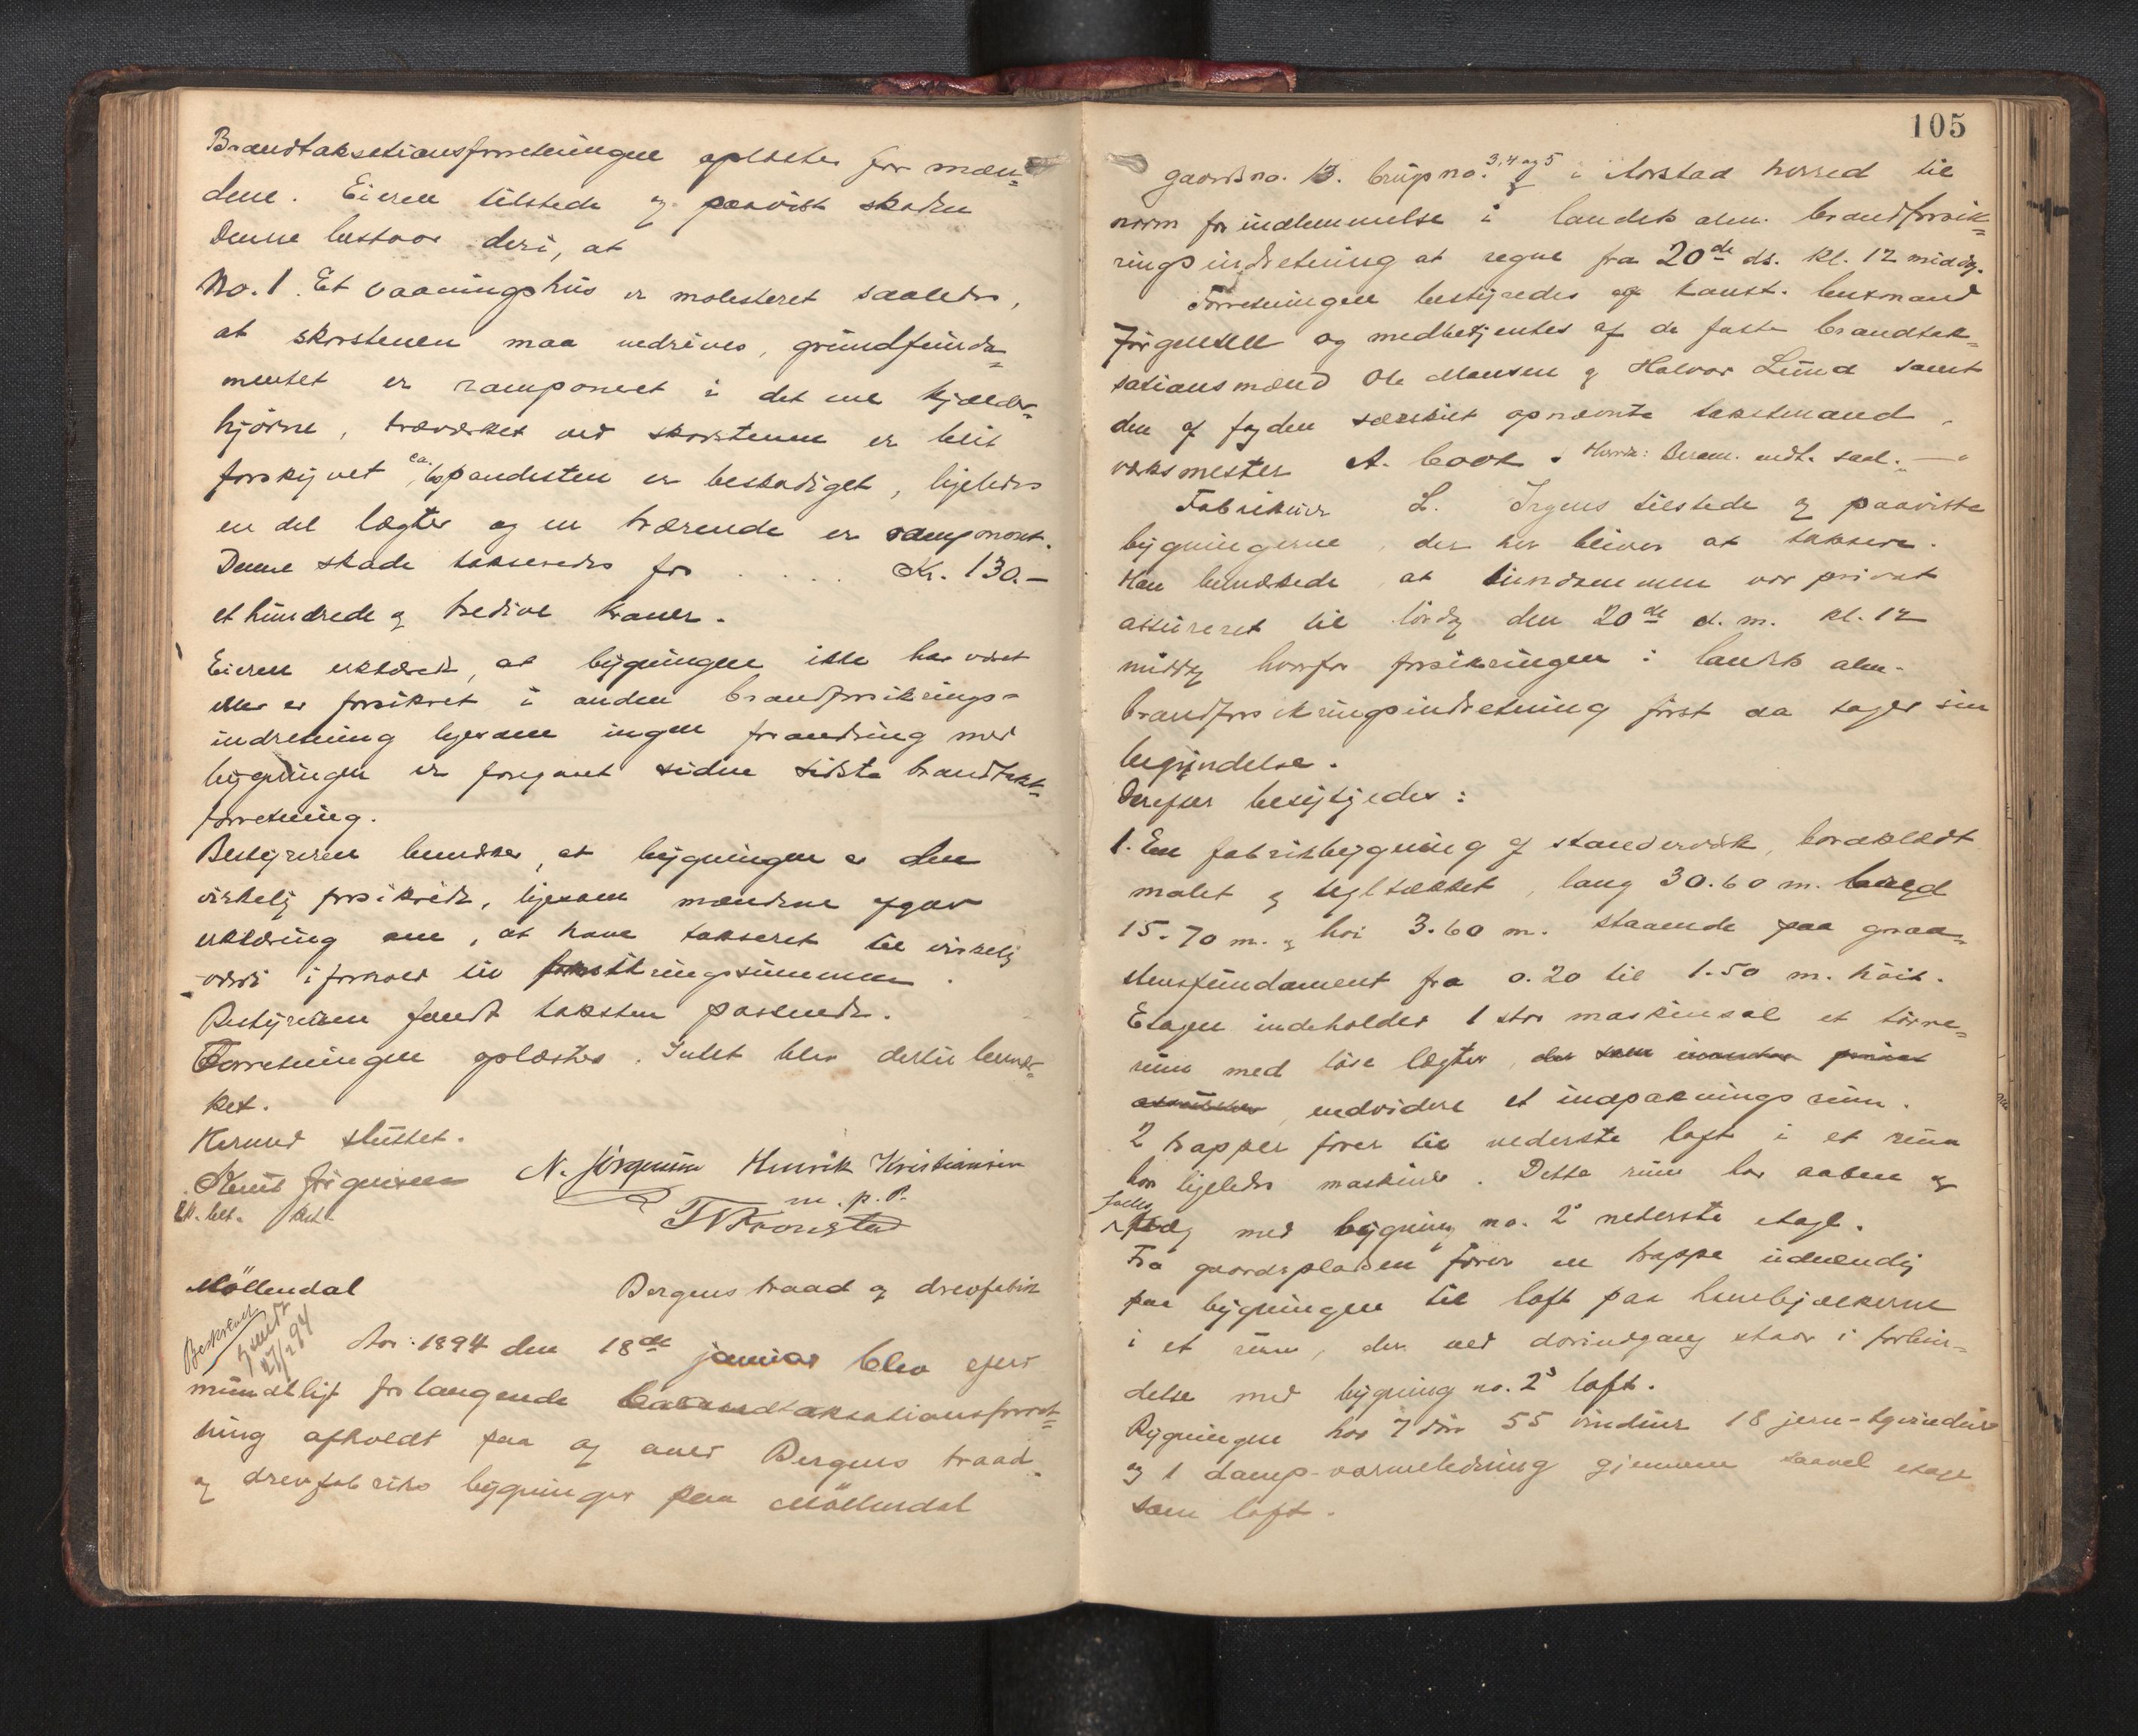 Brandtaksationsforretningen oplæstes for mæn=
dene. Eieren tilstede og paaviste skaden
Denne bestaar deri, at
No. 1. Et vaaningshus er molesteret saaledes,
at skorstenen maa nedrives, grundfunda=
mentet er ramponeret i det ene kjælder=
hjørne, træverket ved skorstenen er blit
forskjvet, ca. 60 pandesten er beskadiget, ligeledes
en del lægter og en trærende er ramponert.
Denne skade takseredes for . . . . Kr. 130.—
et hundrede og tredive kroner.
Eieren erklærede, at bygningen ikke har været
eller er forsikret i anden brandforsikrings=
indretning ligesom ingen forandring med
bygningen er foregaaet siden sidste brandtakst=
forretning.
Bestyreren bemærker, at bygningen er den
virkelig forsikrede, ligesom mændene afgav
erklæring om, at have takseret til virkelig
værdi i forhold til forsikringssummen.
Bestyreren fandt taksten passende.
Forretningen oplæstes. Intet blev dertil bemær=
ket.
Hermed sluttet.
Knut Jörgensen N. Jörgensen Henrik Kristiansen
m. p. P.
T N Kronstad
Möllendal Bergens traad og drevfabrik
Beskrevet
Aar: 1894 den 18de januar blev efter
mundtligt forlangende brandtaksationsforret=
ning afholdt paa og over Bergens traad
og drevfabriks bygninger paa Möllendal
105
gaards no. 13. brugs no. 3, 4 og 5 i Aarstad herred til
norm for indlemmelse i landets alm. brandforsik=
ringsindretning at regne fra 20de ds. kl. 12 middag.
Forretningen bestyredes af konst. lensmand
Jörgensen og medbetjentes af de faste brandtak=
sationsmænd Ole Monsen og Halvor Lund samt
den af fogden særskilt opnævnte takstmand,
værksmester A. Cook.
Fabrikeier L. Irgens tilstede og paaviste
bygningerne, der her bliver at taksere.
Han bemærkede at eiendommen var privat
assureret til lördag den 20de d. m. kl. 12
middag hvorfor forsikringen i landets alm.
brandforsikringsindretning først da tager sin
begyndelse.
Derefter besigtigedes:
1. En fabrikbygning af standerværk, bordklædt
malet og tegltækket, lang 30.60 m. bred
15.70 m. og høi 3.60 m. staaende paa graa=
stensfundament fra 0.20 til 1.50 m. høit.
Etagen indeholder 1 stor maskinsal et tørre=
rum med løse lægter,
endvidere et indpakningsrum.
2 trapper fører til nederste loft i et rum
har ligeledes maskiner. Dette rum har aaben og
fælles med bygning no. 2's nederste etage.
Fra gaardspladsen fører en trappe udvendig
paa bygningen til loft paa hanebjælkerne
i et rum, der ved dørindgang staar i forbin=
delse med bygning no. 2's loft.
Bygningen har 7 dör 55 vinduer 18 jern-tagvinduer
og 1 damp-varmeledning gjennem saavel etage
som loft.